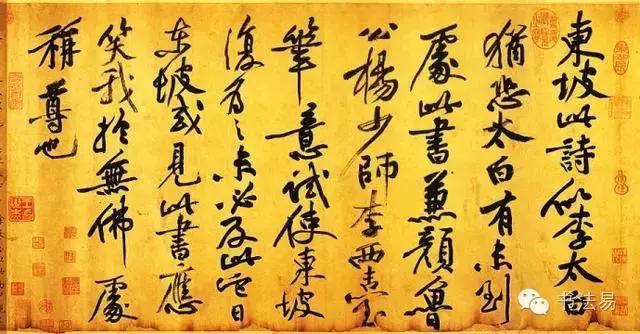 東坡此詩似李太白
猶恐太白有未到
處此書兼顏魯
公楊少師李西臺
筆意試使東坡
復為之未必及此它日
東坡或見此書應
笑我於無佛處
稱尊也
书法易